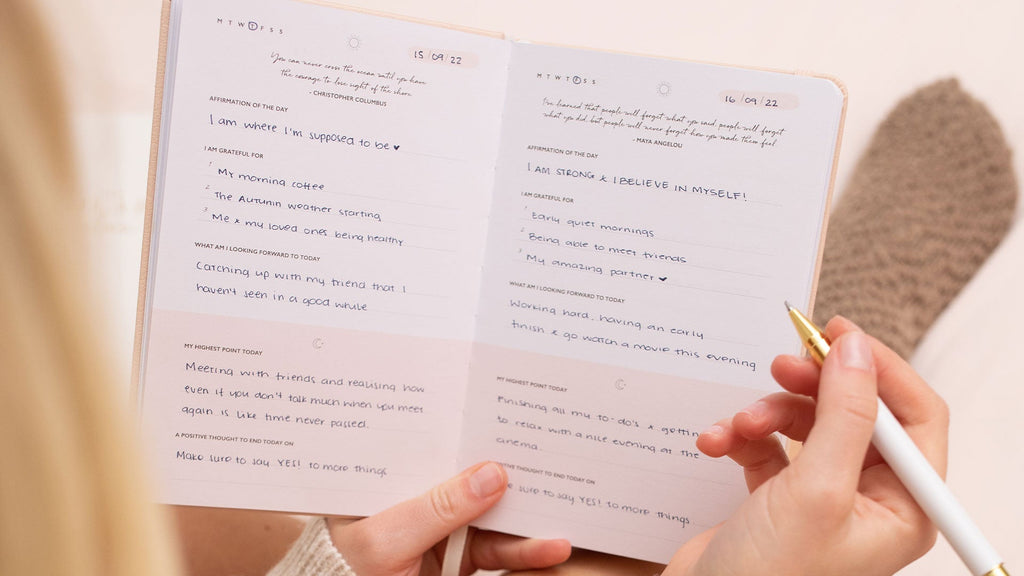 M T W T F S S
15 / 09 / 22
You can never cross the ocean until you have
the courage to lose sight of the shore
- CHRISTOPHER COLUMBUS
AFFIRMATION OF THE DAY
I am where I'm supposed to be ♥
I AM GRATEFUL FOR
1 My morning coffee
2 The Autumn weather starting
3 Me & my loved ones being healthy
WHAT AM I LOOKING FORWARD TO TODAY
Catching up with my friend that I
haven't seen in a good while
MY HIGHEST POINT TODAY
Meeting with friends and realising how
even if you don't talk much when you meet
again is like time never passed.
A POSITIVE THOUGHT TO END TODAY ON
Make sure to say YES! to more things
M T W T F S S
16 / 09 / 22
I've learned that people will forget what you said, people will forget
what you did, but people will never forget how you made them feel.
- MAYA ANGELOU
AFFIRMATION OF THE DAY
I AM STRONG & I BELIEVE IN MYSELF!
I AM GRATEFUL FOR
1 Early quiet mornings
2 Being able to meet friends
3 My amazing partner ♥
WHAT AM I LOOKING FORWARD TO TODAY
Working hard, having an early
finish & go watch a movie this evening
MY HIGHEST POINT TODAY
Finishing all my to-do's & gettin
to relax with a nice evening at the
cinema.
THOUGHT TO END TODAY ON
sure to say YES! to more things